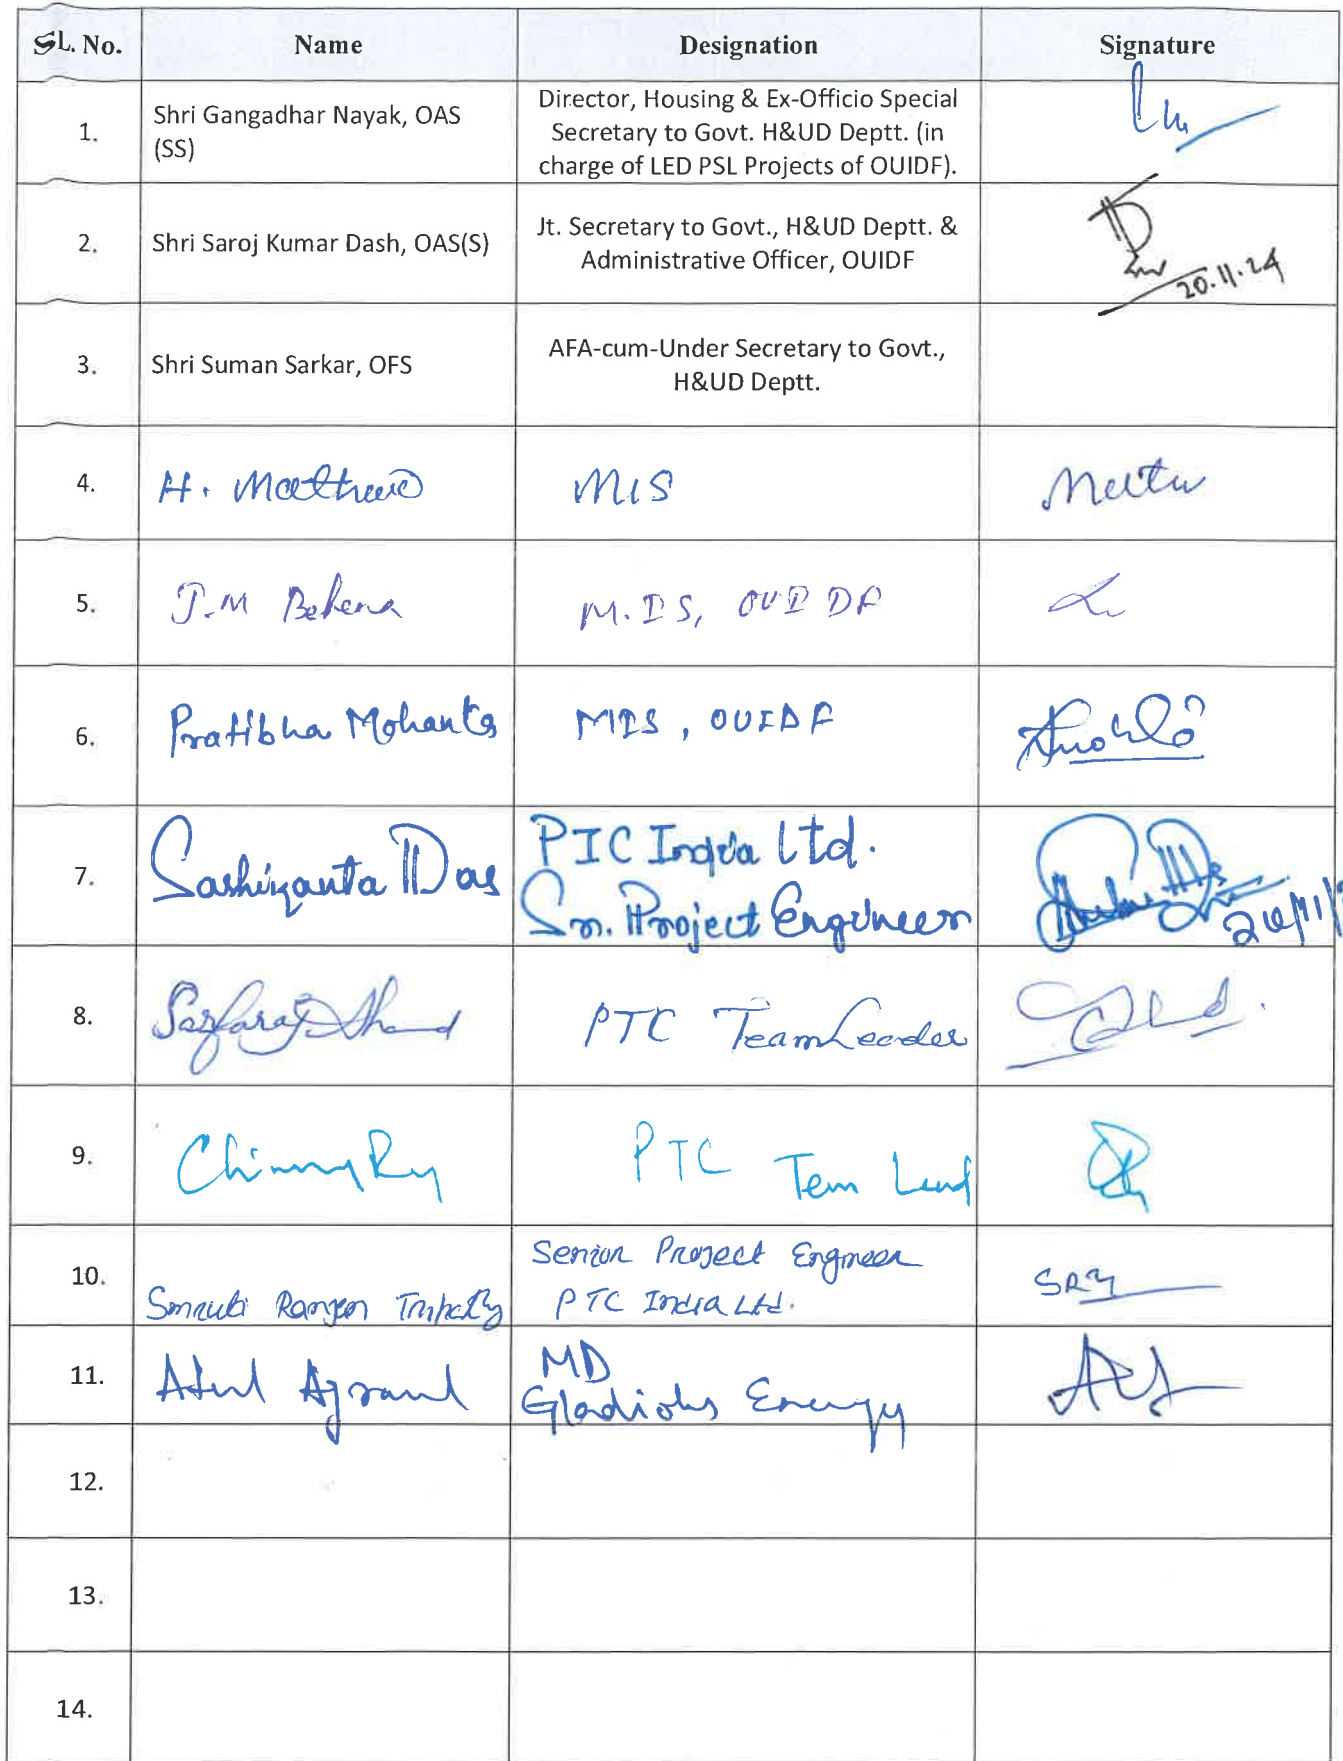 SL. No. Name Designation Signature
1. Shri Gangadhar Nayak, OAS (SS)
Director, Housing & Ex-Officio Special
Secretary to Govt. H&UD Deptt. (in
charge of LED PSL Projects of OUIDF).
2. Shri Saroj Kumar Dash, OAS(S)
Jt. Secretary to Govt., H&UD Deptt. &
Administrative Officer, OUIDF
20.11.24
3. Shri Suman Sarkar, OFS
AFA-cum-Under Secretary to Govt.,
H&UD Deptt.
4. H. MIS
5. J.M Behera M.IS, OUIDF
6. Pratibha Mohanty MIS, OUIDF
7. Sashikanta Das
PTC India Ltd.
Sr. Project Engineer
8. PTC Team Leader
9. PTC
10. Ranjan Tripathy
Senior Project Engineer
PTC India Ltd.
11. Atul
MD
Energy
12.
13.
14.